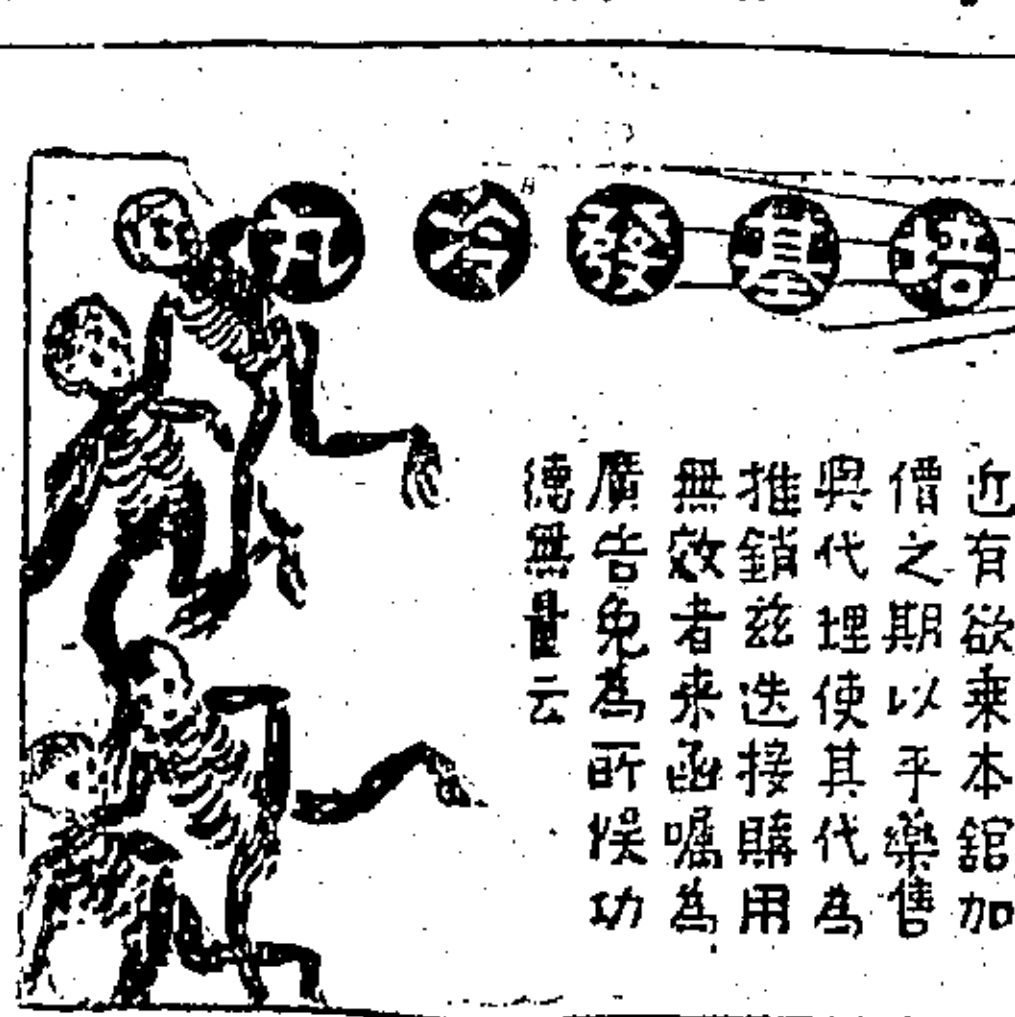 發冷丸
近有欲乘本舘加
價之期以平藥售
與代理使其代為
推銷茲迭接購用
無效者来函囑為
廣告免為所悮功
德無量云